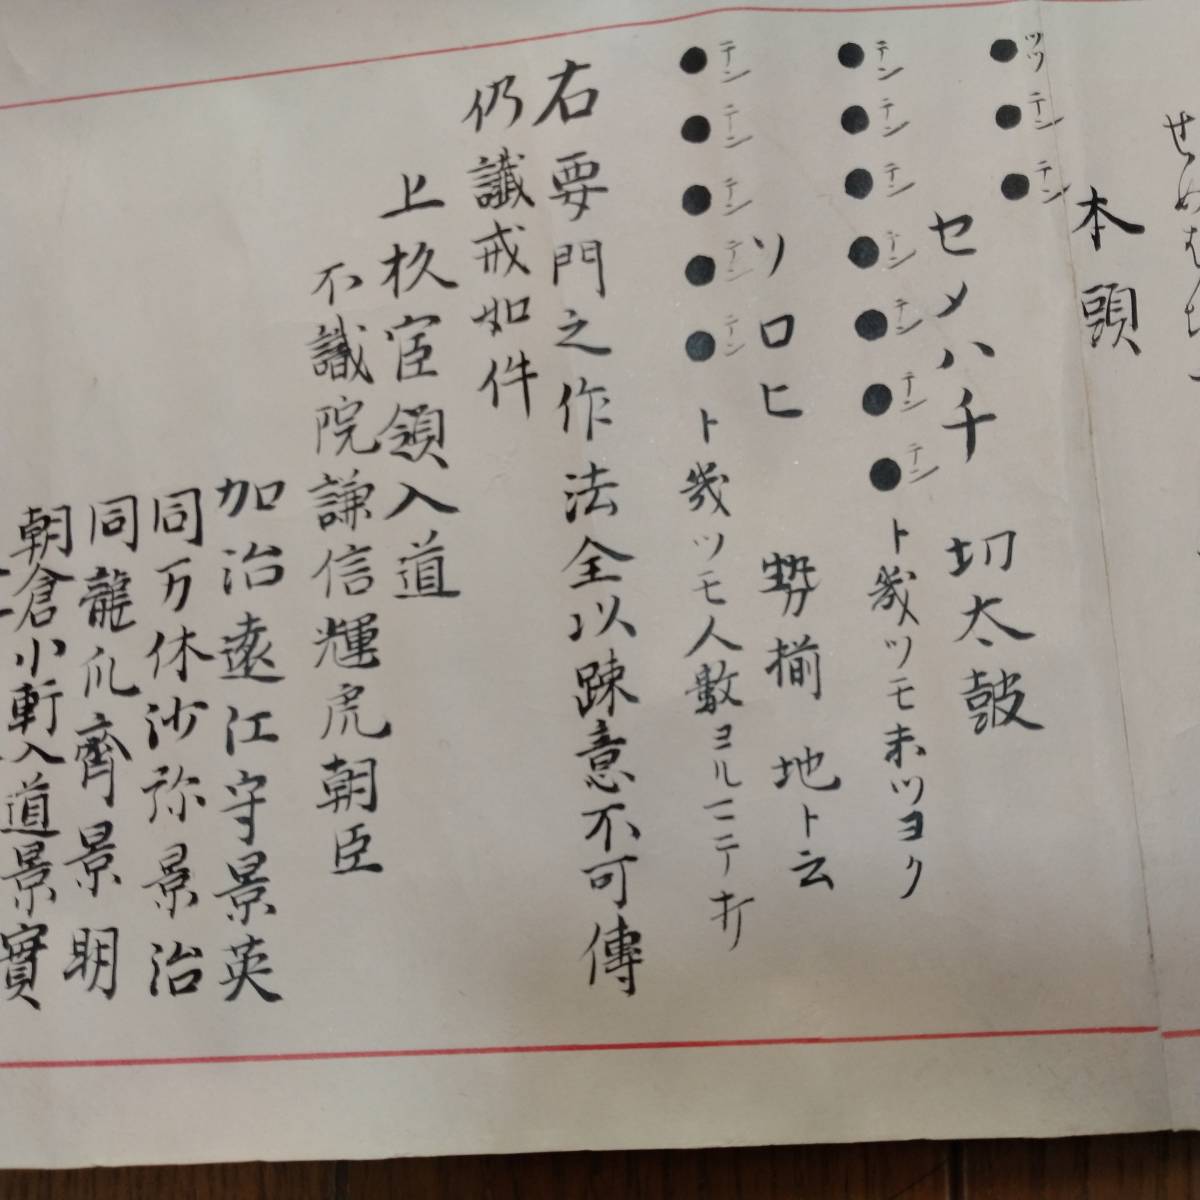 せめ
本頭
●ツツ ●テン ●テン
セメハチ 切太鼓
●テン ●テン ●テン ●テン ●テン ●テン ●テン ト幾ツモ末ツヨク
ソロヒ 勢揃 地ト云
●テン ●テン ●テン ●テン ●テン ト幾ツモ人數ヨル一ニテ打
右要門之作法全以踈意不可傳
仍讖戒如件
上杦官領入道
不識院謙信輝虎朝臣
加治遠江守景英
同万休沙弥景治
同龍爪齊景明
朝倉小軒入道景實